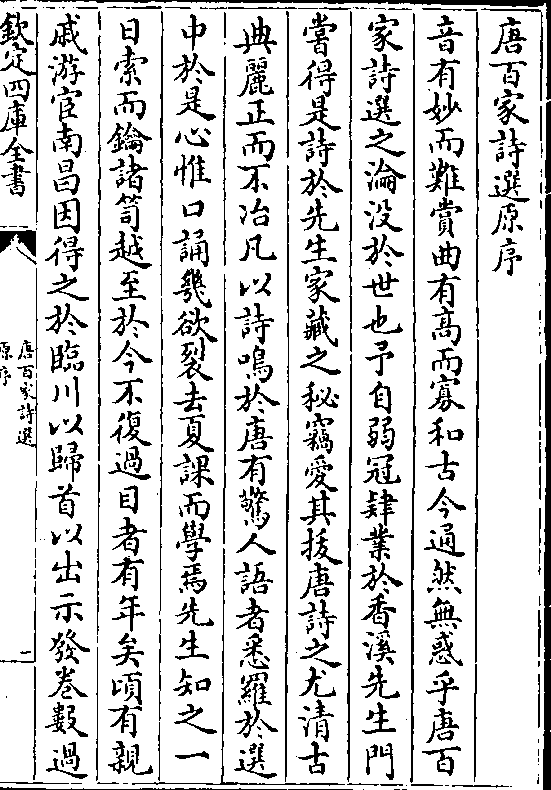 唐百家詩選原序
音有妙而難賞曲有髙而寡和古今通然無惑乎唐百
家詩選之淪没於世也予自弱冠肄業於香溪先生門
嘗得是詩於先生家藏之秘竊愛其拔唐詩之尤清古
典麗正而不冶凡以詩鳴於唐有驚人語者悉羅於選
中於是心惟口誦幾欲裂去夏課而學焉先生知之一
日索而鑰諸笥越至於今不復過目者有年矣頃有親
戚游宦南昌因得之於臨川以歸首以出示發卷數過
欽定四庫全書
唐百家詩選
原序
一